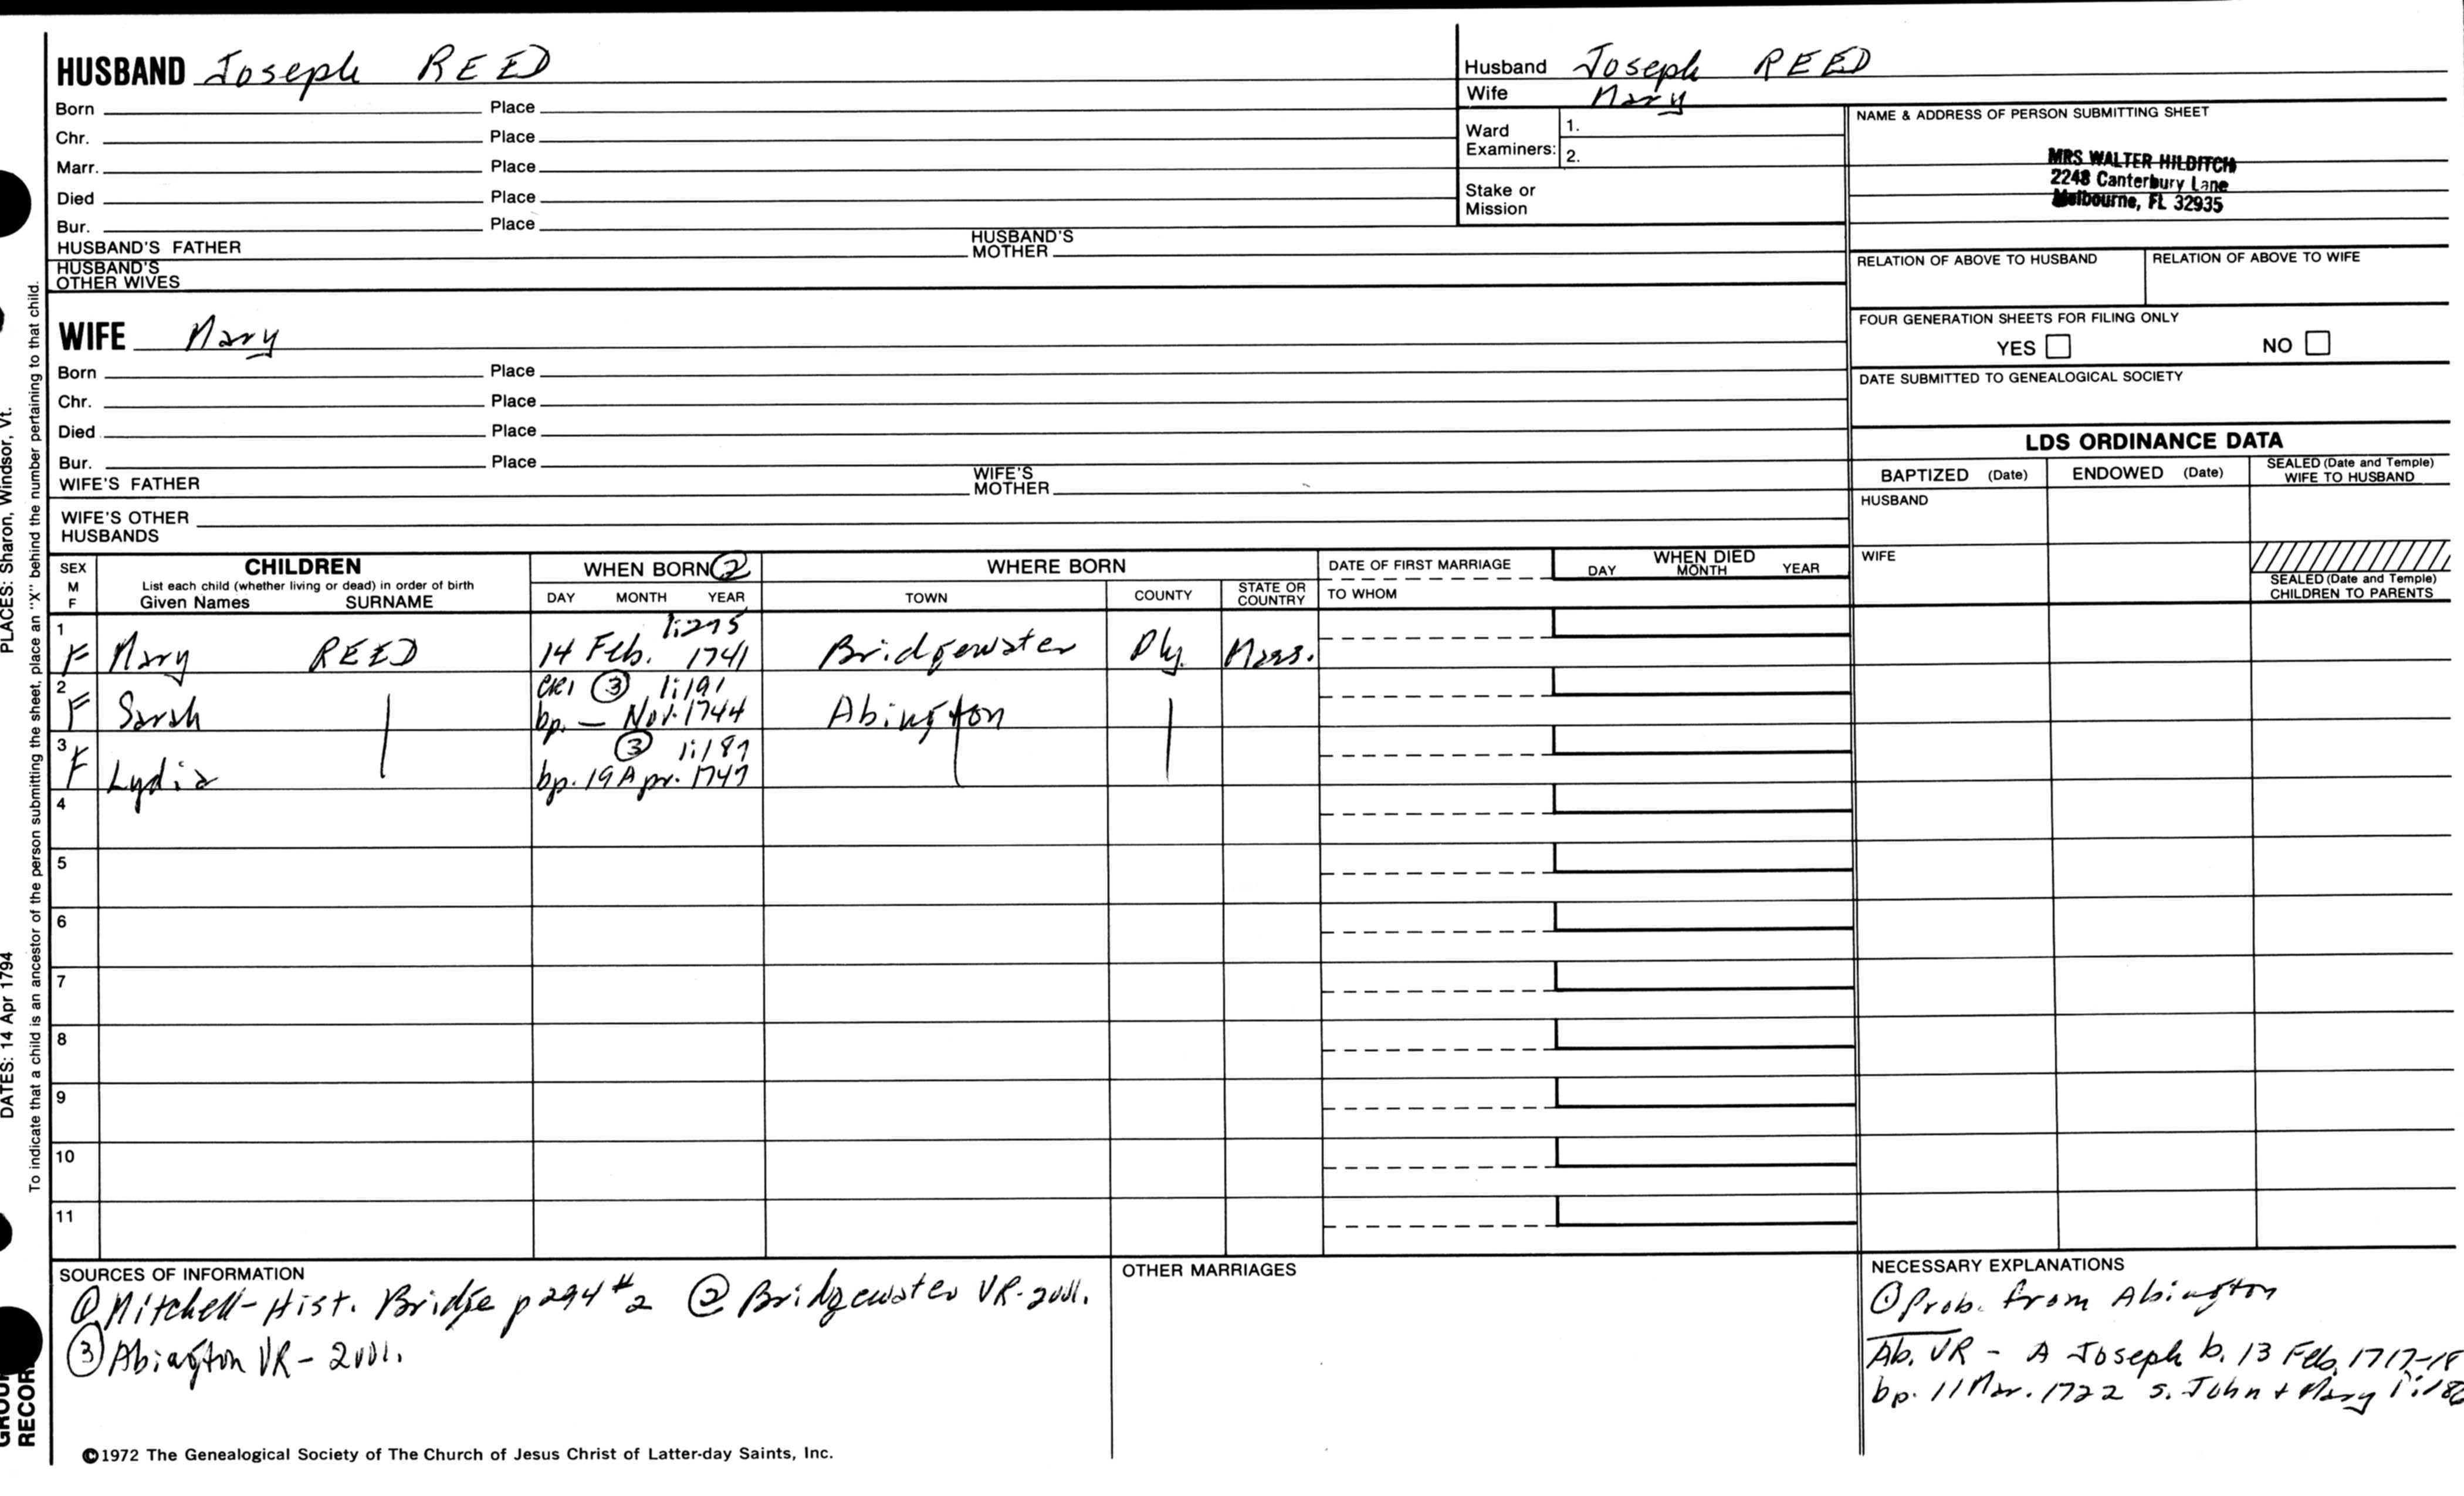 HUSBAND Joseph REED
Born Place
Chr. Place
Marr. Place
Died Place
Bur. Place
HUSBAND'S FATHER HUSBAND'S MOTHER
HUSBAND'S OTHER WIVES
WIFE Mary
Born Place
Chr. Place
Died Place
Bur. Place
WIFE'S FATHER WIFE'S MOTHER
WIFE'S OTHER HUSBANDS
Husband Joseph REED
Wife Mary
Ward Examiners: 1.
2.
Stake or Mission
NAME & ADDRESS OF PERSON SUBMITTING SHEET
MRS WALTER HILDITCH
2248 Canterbury Lane
Melbourne, FL 32935
RELATION OF ABOVE TO HUSBAND RELATION OF ABOVE TO WIFE
FOUR GENERATION SHEETS FOR FILING ONLY
YES NO
DATE SUBMITTED TO GENEALOGICAL SOCIETY
LDS ORDINANCE DATA
BAPTIZED (Date) ENDOWED (Date) SEALED (Date and Temple) WIFE TO HUSBAND
HUSBAND
WIFE
SEALED (Date and Temple) CHILDREN TO PARENTS
SEX M F CHILDREN WHEN BORN ② WHERE BORN DATE OF FIRST MARRIAGE WHEN DIED
List each child (whether living or dead) in order of birth
Given Names SURNAME DAY MONTH YEAR TOWN COUNTY STATE OR COUNTRY TO WHOM DAY MONTH YEAR
1 1:275
F Mary REED 14 Feb. 1741 Bridgewater Ply. Mass.
2 CR1 ③ 1:191
F Sarah bp. — Nov. 1744 Abington
3 ③ 1:187
F Lydia bp. 19 Apr. 1747
4
5
6
7
8
9
10
11
SOURCES OF INFORMATION
① Mitchell - Hist. Bridge p 294 #2 ② Bridgewater VR - 2vol.
③ Abington VR - 2vol.
OTHER MARRIAGES
NECESSARY EXPLANATIONS
① Prob. from Abington
Ab. VR - A Joseph b. 13 Feb. 1717-18
bp. 11 Mar. 1722 s. John + Mary
©1972 The Genealogical Society of The Church of Jesus Christ of Latter-day Saints, Inc.
PLACES: Sharon, Windsor, Vt.
DATES: 14 Apr 1794
To indicate that a child is an ancestor of the person submitting the sheet, place an "X" behind the number pertaining to that child.